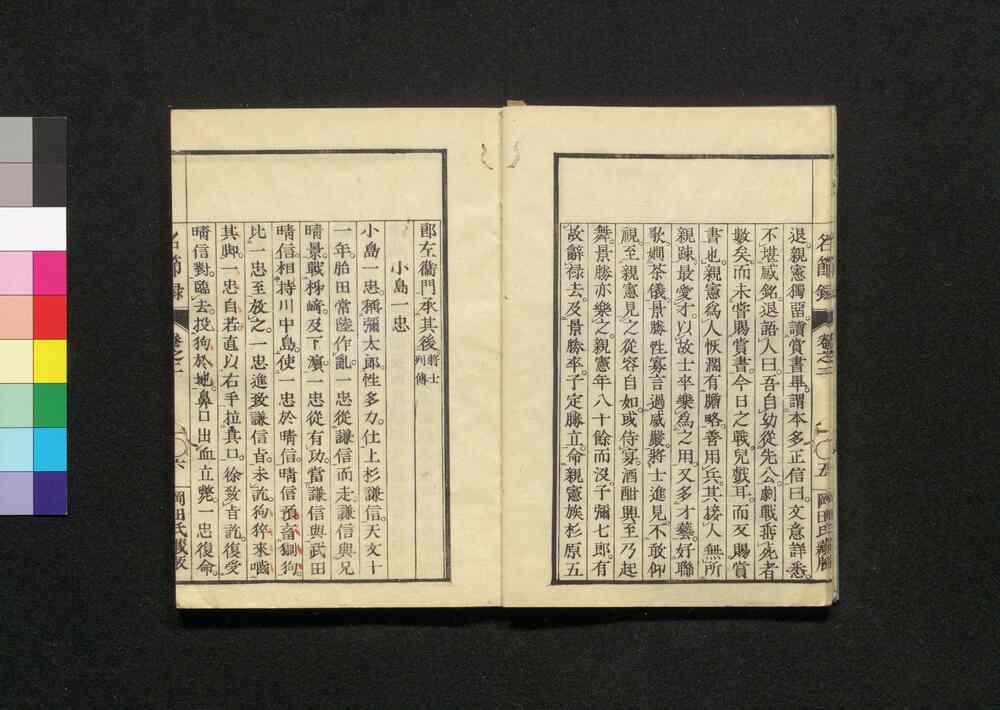 名節録
卷之二
五
岡田氏藏版
退。親憲獨留。讀賞書畢。謂本多正信曰。文意詳悉。
不堪感銘。退語人曰。吾自幼從先公。劇戰瀕死者
數矣。而未嘗賜賞書。今日之戰兒戲耳。而反賜賞
書也。親憲爲人恢濶有膽略。善用兵。其接人無所
親疎。最愛才。以故士卒樂爲之用。又多才藝。好聯
歌。嫻茶儀。景勝性寡言過威嚴。將士進見。不敢仰
視。至親憲見之。從容自如。或侍宴。酒酣興至。乃起
舞。景勝亦樂之。親憲年八十餘而沒。子彌七郎。有
故辭禄去。及景勝卒。子定勝立。命親憲族杉原五
郎左衞門承其後。將士列傳
小島一忠
小島一忠。稱彌太郎。性多力。仕上杉謙信。天文十
一年。胎田常陸作亂。一忠從謙信而走。謙信與兄
晴景。戰栃﨑及下濵。一忠從有功。當謙信與武田
晴信相持川中島。使一忠於晴信。晴信預畜猘狗。
比一忠至放之。一忠進致謙信旨。未訖。狗猝來嚙
其脚。一忠自若。直以右手拉其口。徐致旨訖。復受
晴信對。臨去。投狗於地。鼻口出血立斃。一忠復命。
名節録
卷之二
六
岡田氏藏版